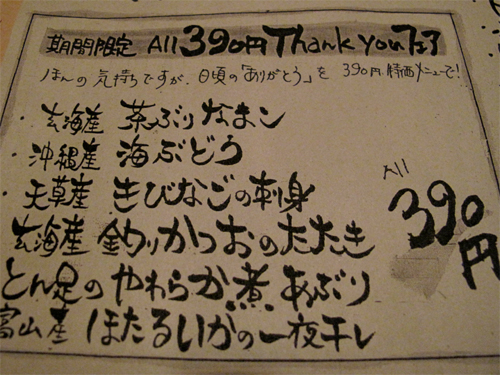 期間限定 All 390円 Thank youフェア
ほんの気持ちですが、日頃の「ありがとう」を 390円特価メニューで!
玄海産 茶ぶりなまこ
沖縄産 海ぶどう
天草産 きびなごの刺身
玄海産 釣りかつおのたたき
とん足のやわらか煮 あぶり
富山産 ほたるいかの一夜干し
All
390円